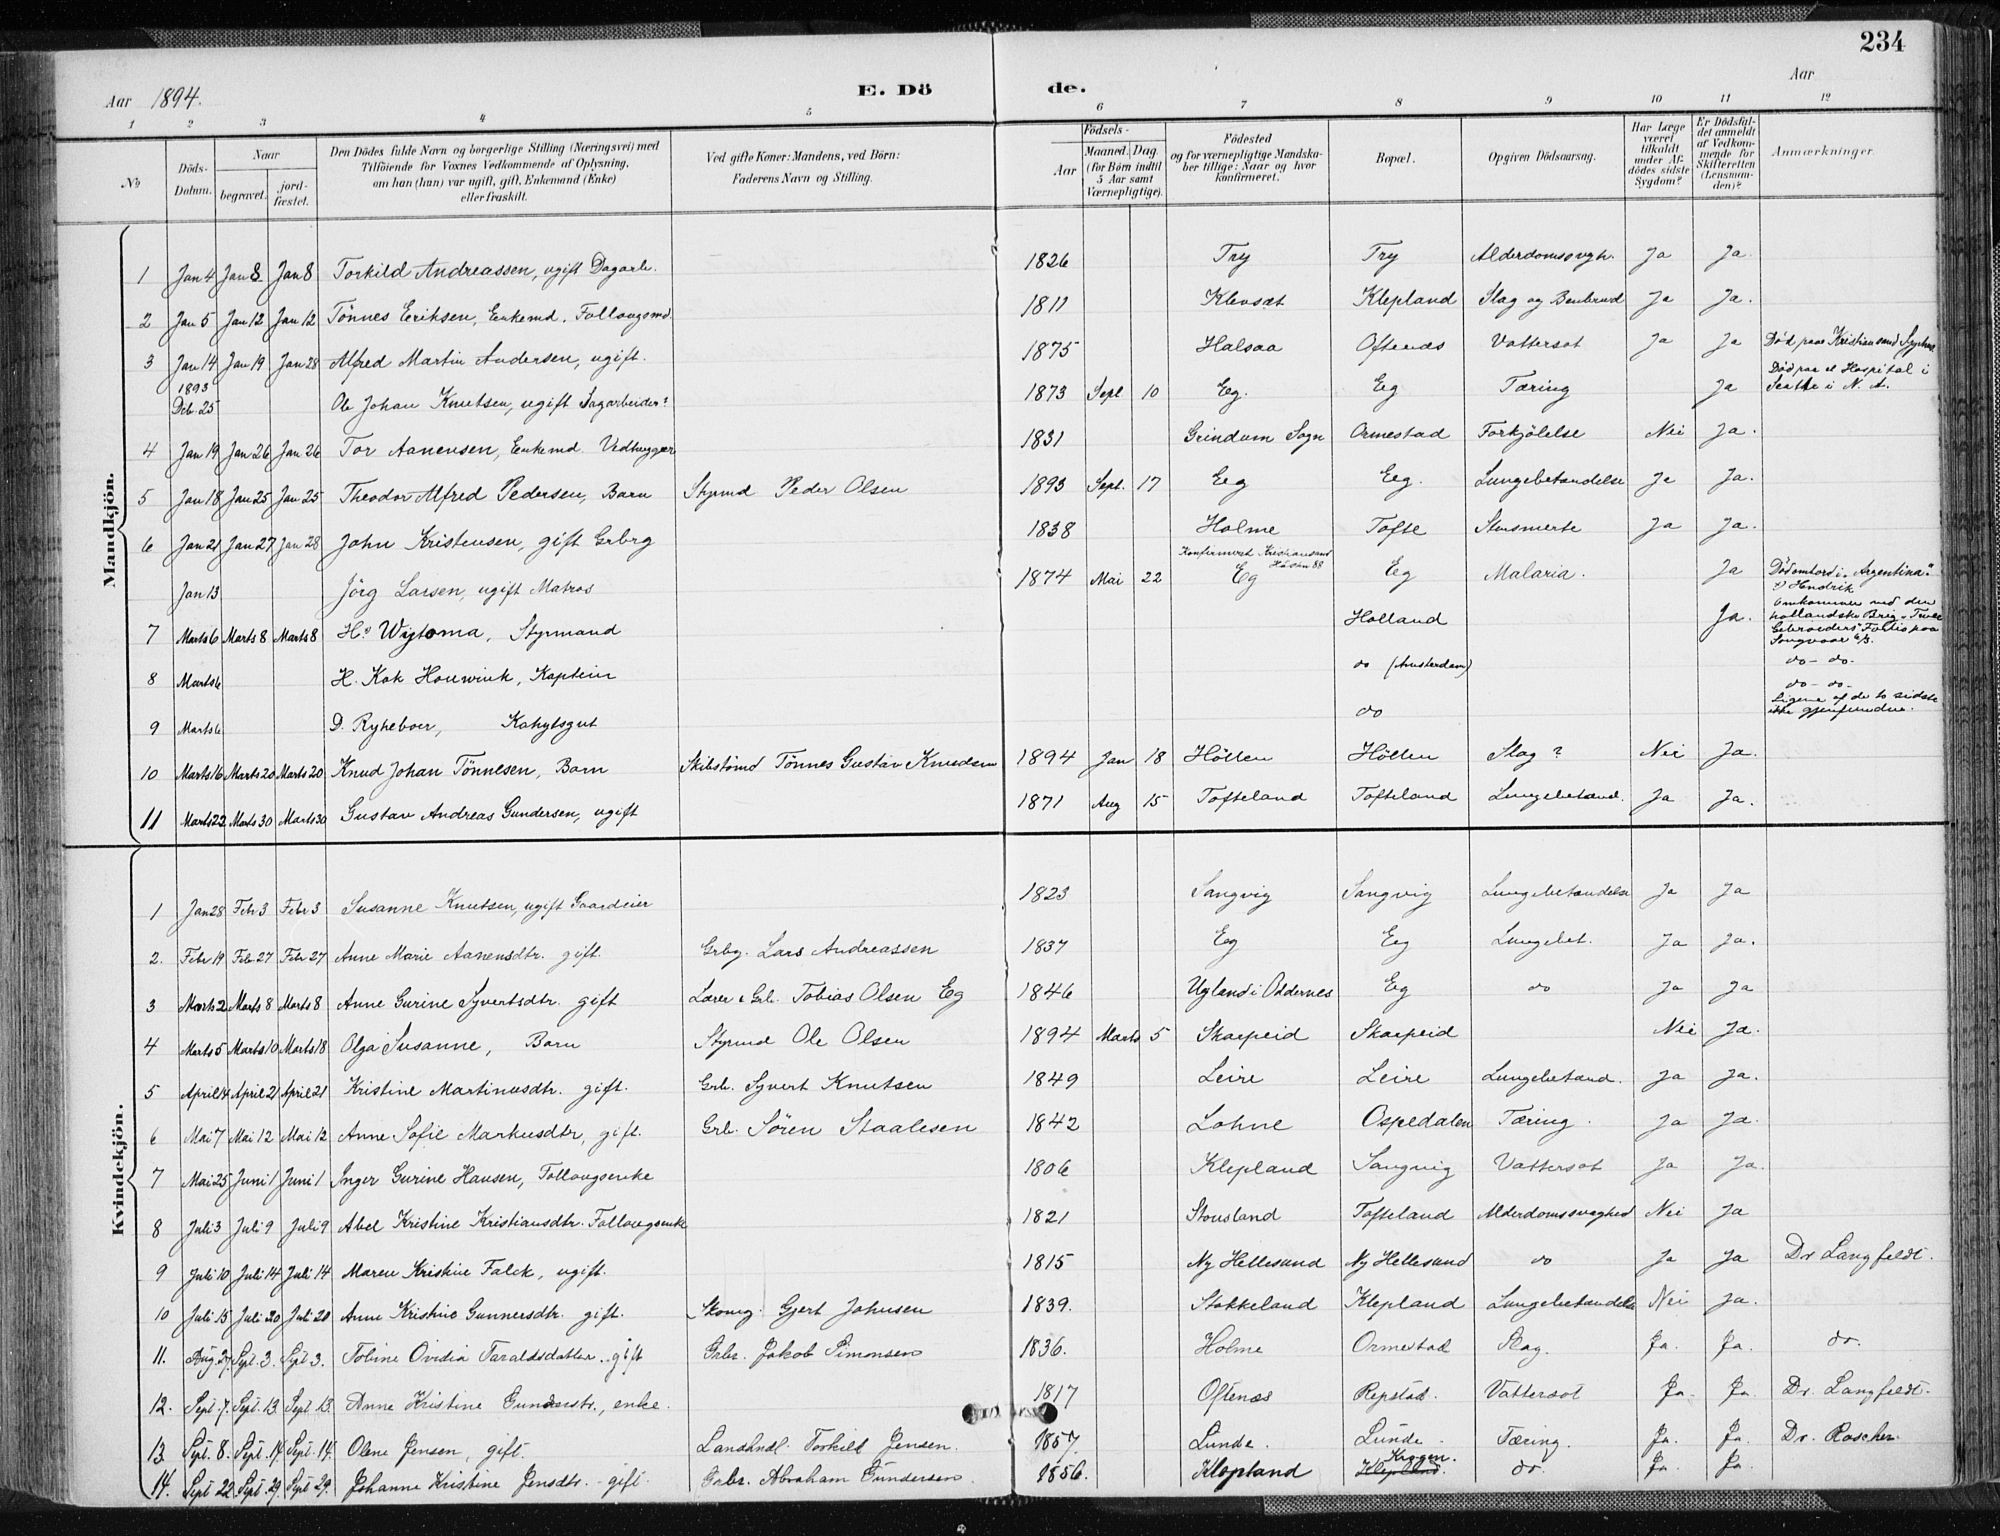 234
Aar 1894.
E. Dö de.
Aar
1 2 3 4 5 6 7 8 9 10 11 12
№
Döds-Datum.
Naar
begravet.
jord-fæstet.
Den Dödes fulde Navn og borgerlige Stilling (Næringsvei) med
Tilföiende for Voxnes Vedkommende af Oplysning,
om han (hun) var ugift, gift, Enkemand (Enke)
eller fraskilt.
Ved gifte Koner: Mandens, ved Börn:
Faderens Navn og Stilling.
Födsels-
Aar
Maaned. Dag.
(for Börn indtil
5 Aar samt
Værnepligtige).
Födested
og for værnepligtige Mandska-
ber tillige: Naar og hvor
konfirmeret.
Bopæl.
Opgiven Dödsaarsag.
Har Læge
været
tilkaldt
under Af-
dödes sidste
Sygdom?
Er Dödsfal-
det anmeldt
af Vedkom-
mende for
Skifteretten
(Lensman-
den)?
Anmærkninger.
Mandkjön.
1 Jan 4 Jan 8 Jan 8 Torkild Andreassen, ugift Dagarb. 1826 Try Try Alderdomssvgh. Ja Ja.
2 Jan 5 Jan 12 Jan 12 Tönnes Eriksen, Enkemd. Follaugsmd. 1811 Klevsæt Klepland Slag og Benbrud Ja Ja.
3 Jan 14 Jan 19 Jan 28 Alfred Martin Andersen, ugift. 1875 Halsaa Oftenæs Vattersot Ja Ja Död paa Kristiansand Sygehus
1893
Deb. 25 Ole Johan Knutsen, ugift Sagarbeider? 1873 Sept 10 Eg. Eg Tæring Ja Död paa et Hospital i
Seattle i N. A.
4 Jan 19 Jan 26 Jan 26 Tor Aanensen, Enkemd. Vedhugger 1831 Grindum Sogn Ormestad Forkjölelse Nei Ja.
5 Jan 18 Jan 25 Jan 25 Theodor Alfred Pedersen, Barn Styrmd Peder Olsen 1893 Sept. 17 Eg Eg. Lungebetændelse Ja Ja.
6 Jan 21 Jan 27 Jan 28 John Kristensen, gift Grbrg 1838 Holme Tofte Ja Ja.
Jan 13 Jörg Larsen, ugift Matros 1874 Mai 22 Konfirmeret Kristiansand
Hösten 88
Eg Eg Malaria. Ja Död ombord i "Argentina"
7 Marts 6 Marts 8 Marts 8 Wijtoma, Styrmand Holland Ja. Omkommen med den
hollandske Brig "Twee
Gebroeders" Forlis paa
Songvaar 6/3.
8 Marts 6 H. Kok Houwink, Kaptein do (Amsterdam) do - do -
9 Marts 6 D. Rykeboer, Kahytsgut do do - do -
Ligene af de to sidste
ikke gjenfundne.
10 Marts 16 Marts 20 Marts 20 Knud Johan Tönnesen, Barn Skibstömd Tönnes Gustav Knudsen 1894 Jan 18 Höllen Höllen Slag? Nei Ja.
11 Marts 22 Marts 30 Marts 30 Gustav Andreas Gundersen, ugift 1871 Aug 15 Tofteland Tofteland Lungebetænd. Ja Ja.
Kvindekjön.
1 Jan 28 Febr 3 Febr 3 Susanne Knutsen, ugift Gaardeier 1823 Sangvig Sangvig Lungebetændelse Ja Ja
2. Febr 19 Feb 27 Febr 27 Anne Marie Aanensdtr. gift. Grbg. Lars Andreassen 1837 Eg Eg Lungebet. Ja Ja.
3 Marts 2 Marts 8 Marts 8 Anne Gurine Syvertsdtr. gift Lærer & Grb. Tobias Olsen Eg 1846 Ugland i Oddernes Eg do Ja Ja
4 Marts 5 Marts 10 Marts 18 Olga Susanne, Barn Styrmd Ole Olsen 1894 Marts 5 Skarpeid Skarpeid Nei Ja.
5 April 14 April 21 April 21 Kristine Martinusdtr. gift. Grb. Syvert Knutsen 1849 Leire Leire Lungebetænd. Ja Ja.
6 Mai 7 Mai 12 Mai 12 Anne Sofie Markusdtr, gift. Grb. Sören Staalesen 1842 Lohne Ospedalen Tæring. Ja Ja.
7 Mai 25 Juni 1 Juni 1 Inger Gurine Hansen, Follaugsenke 1806 Klepland Sangvig Vattersot Ja Ja.
8 Juli 3 Juli 9 Juli 9 Abel Kristine Kristiansdtr. Follaugsenke 1821 Stousland Tofteland Alderdomssvaghed Nei Ja
9 Juli 10 Juli 14 Juli 14 Maren Kristine Falck, ugift. 1815 Ny Hellesund Ny Hellesund do Ja Ja Dr Langfeldt.
10 Juli 15 Juli 20 Juli 20 Anne Kristine Gunnersdtr. gift. Skomg. Gjert Johnsen 1839. Stokkeland Klepland Lungebetændelse Nei Ja.
11. Aug. 27. Sept. 3. Sept 3. Tobine Ovidia Taraldsdatter.. gift Grbr. Jakob Simonsen 1836. Holme Ormestad Slag. Ja. Ja. do.
12. Sept. 7. Sept. 13. Sept. 13. Anne Kristine Gunderstr., enke. 1817 Oftenæs Repstad. Vattersot Ja. Ja. Dr. Langfeldt.
13. Sept. 8. Sept. 14. Sept. 14. Olene Jensen, gift. Landhndl. Torkild Jensen. 1857. Lunde. Lunde. Tæring. Ja. Ja. Dr. Roscher.
14. Sept 22. Sept. 29. Sept 29. Johanne Kristine Jensdtr. - gift. Grbr. Abraham Gundersen 1856. Klepland Klepland. Krogen. do. Ja. Ja.